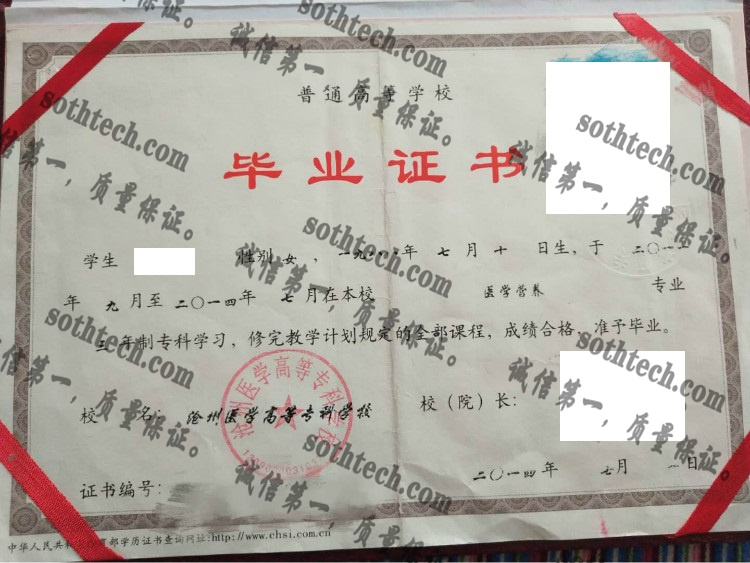 普通高等学校
毕业证书
学生 性别 女 , 一九 年 七 月 十 日生, 于 二〇一
年 九 月至 二〇一四 年 七 月在本校 医学营养 专业
三 年制专科学习, 修完教学计划规定的全部课程, 成绩合格, 准予毕业。
校 名: 沧州医学高等专科学校 校（院）长:
二〇一四 年 七 月 一 日
证书编号:
中华人民共和 育部学历证书查询网址:http://www.chsi.com.cn
沧州医学高等专科学校
sothtech.com
诚信第一，质量保证。
sothtech.com
诚信第一，质量保证。
sothtech.com
诚信第一，质量保证。
sothtech.com
诚信第一，质量保证。
sothtech.com
诚信第一，质量保证。
sothtech.com
诚信第一，质量保证。
sothtech.com
诚信第一，质量保证。
sothtech.com
诚信第一，质量保证。
sothtech.com
诚信第一，质量保证。